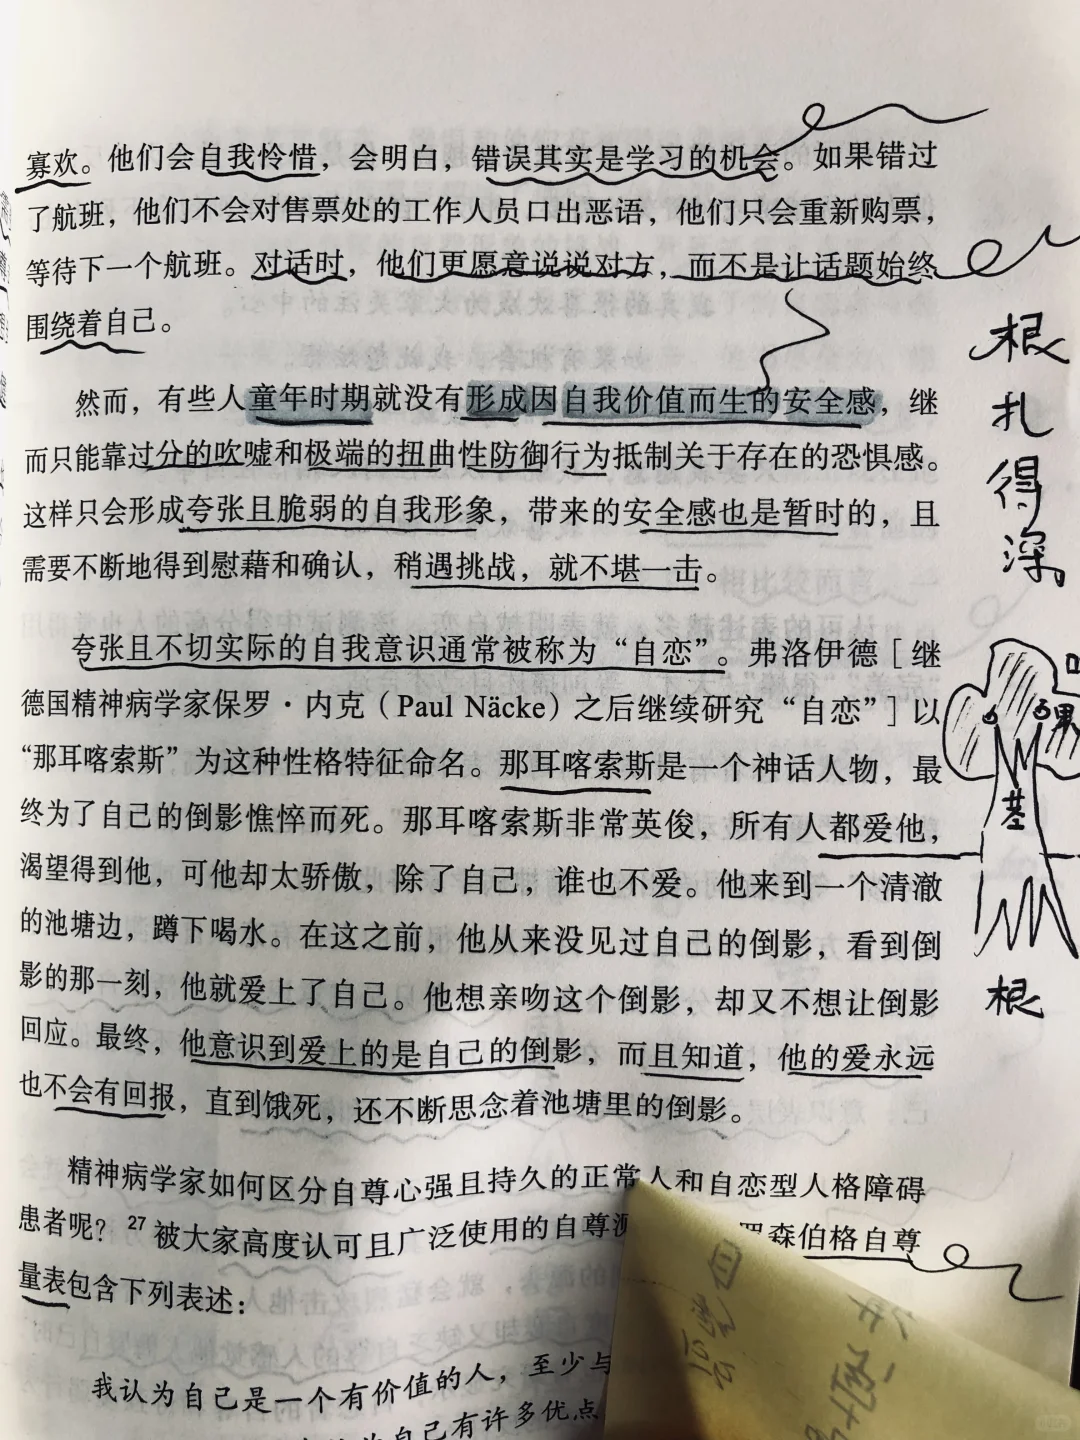 寡欢。他们会自我怜惜，会明白，错误其实是学习的机会。如果错过
了航班，他们不会对售票处的工作人员口出恶语，他们只会重新购票，
等待下一个航班。对话时，他们更愿意说说对方，而不是让话题始终
围绕着自己。
然而，有些人童年时期就没有形成因自我价值而生的安全感，继
而只能靠过分的吹嘘和极端的扭曲性防御行为抵制关于存在的恐惧感。
这样只会形成夸张且脆弱的自我形象，带来的安全感也是暂时的，且
需要不断地得到慰藉和确认，稍遇挑战，就不堪一击。
夸张且不切实际的自我意识通常被称为“自恋”。弗洛伊德［继
德国精神病学家保罗·内克（Paul Näcke）之后继续研究“自恋”］以
“那耳喀索斯”为这种性格特征命名。那耳喀索斯是一个神话人物，最
终为了自己的倒影憔悴而死。那耳喀索斯非常英俊，所有人都爱他，
渴望得到他，可他却太骄傲，除了自己，谁也不爱。他来到一个清澈
的池塘边，蹲下喝水。在这之前，他从来没见过自己的倒影，看到倒
影的那一刻，他就爱上了自己。他想亲吻这个倒影，却又不想让倒影
回应。最终，他意识到爱上的是自己的倒影，而且知道，他的爱永远
也不会有回报，直到饿死，还不断思念着池塘里的倒影。
精神病学家如何区分自尊心强且持久的正常人和自恋型人格障碍
患者呢？27 被大家高度认可且广泛使用的自尊 森伯格自尊
量表包含下列表述：
我认为自己是一个有价值的人，至少与
自己有许多优点
根
扎
得
深
果
茎
根